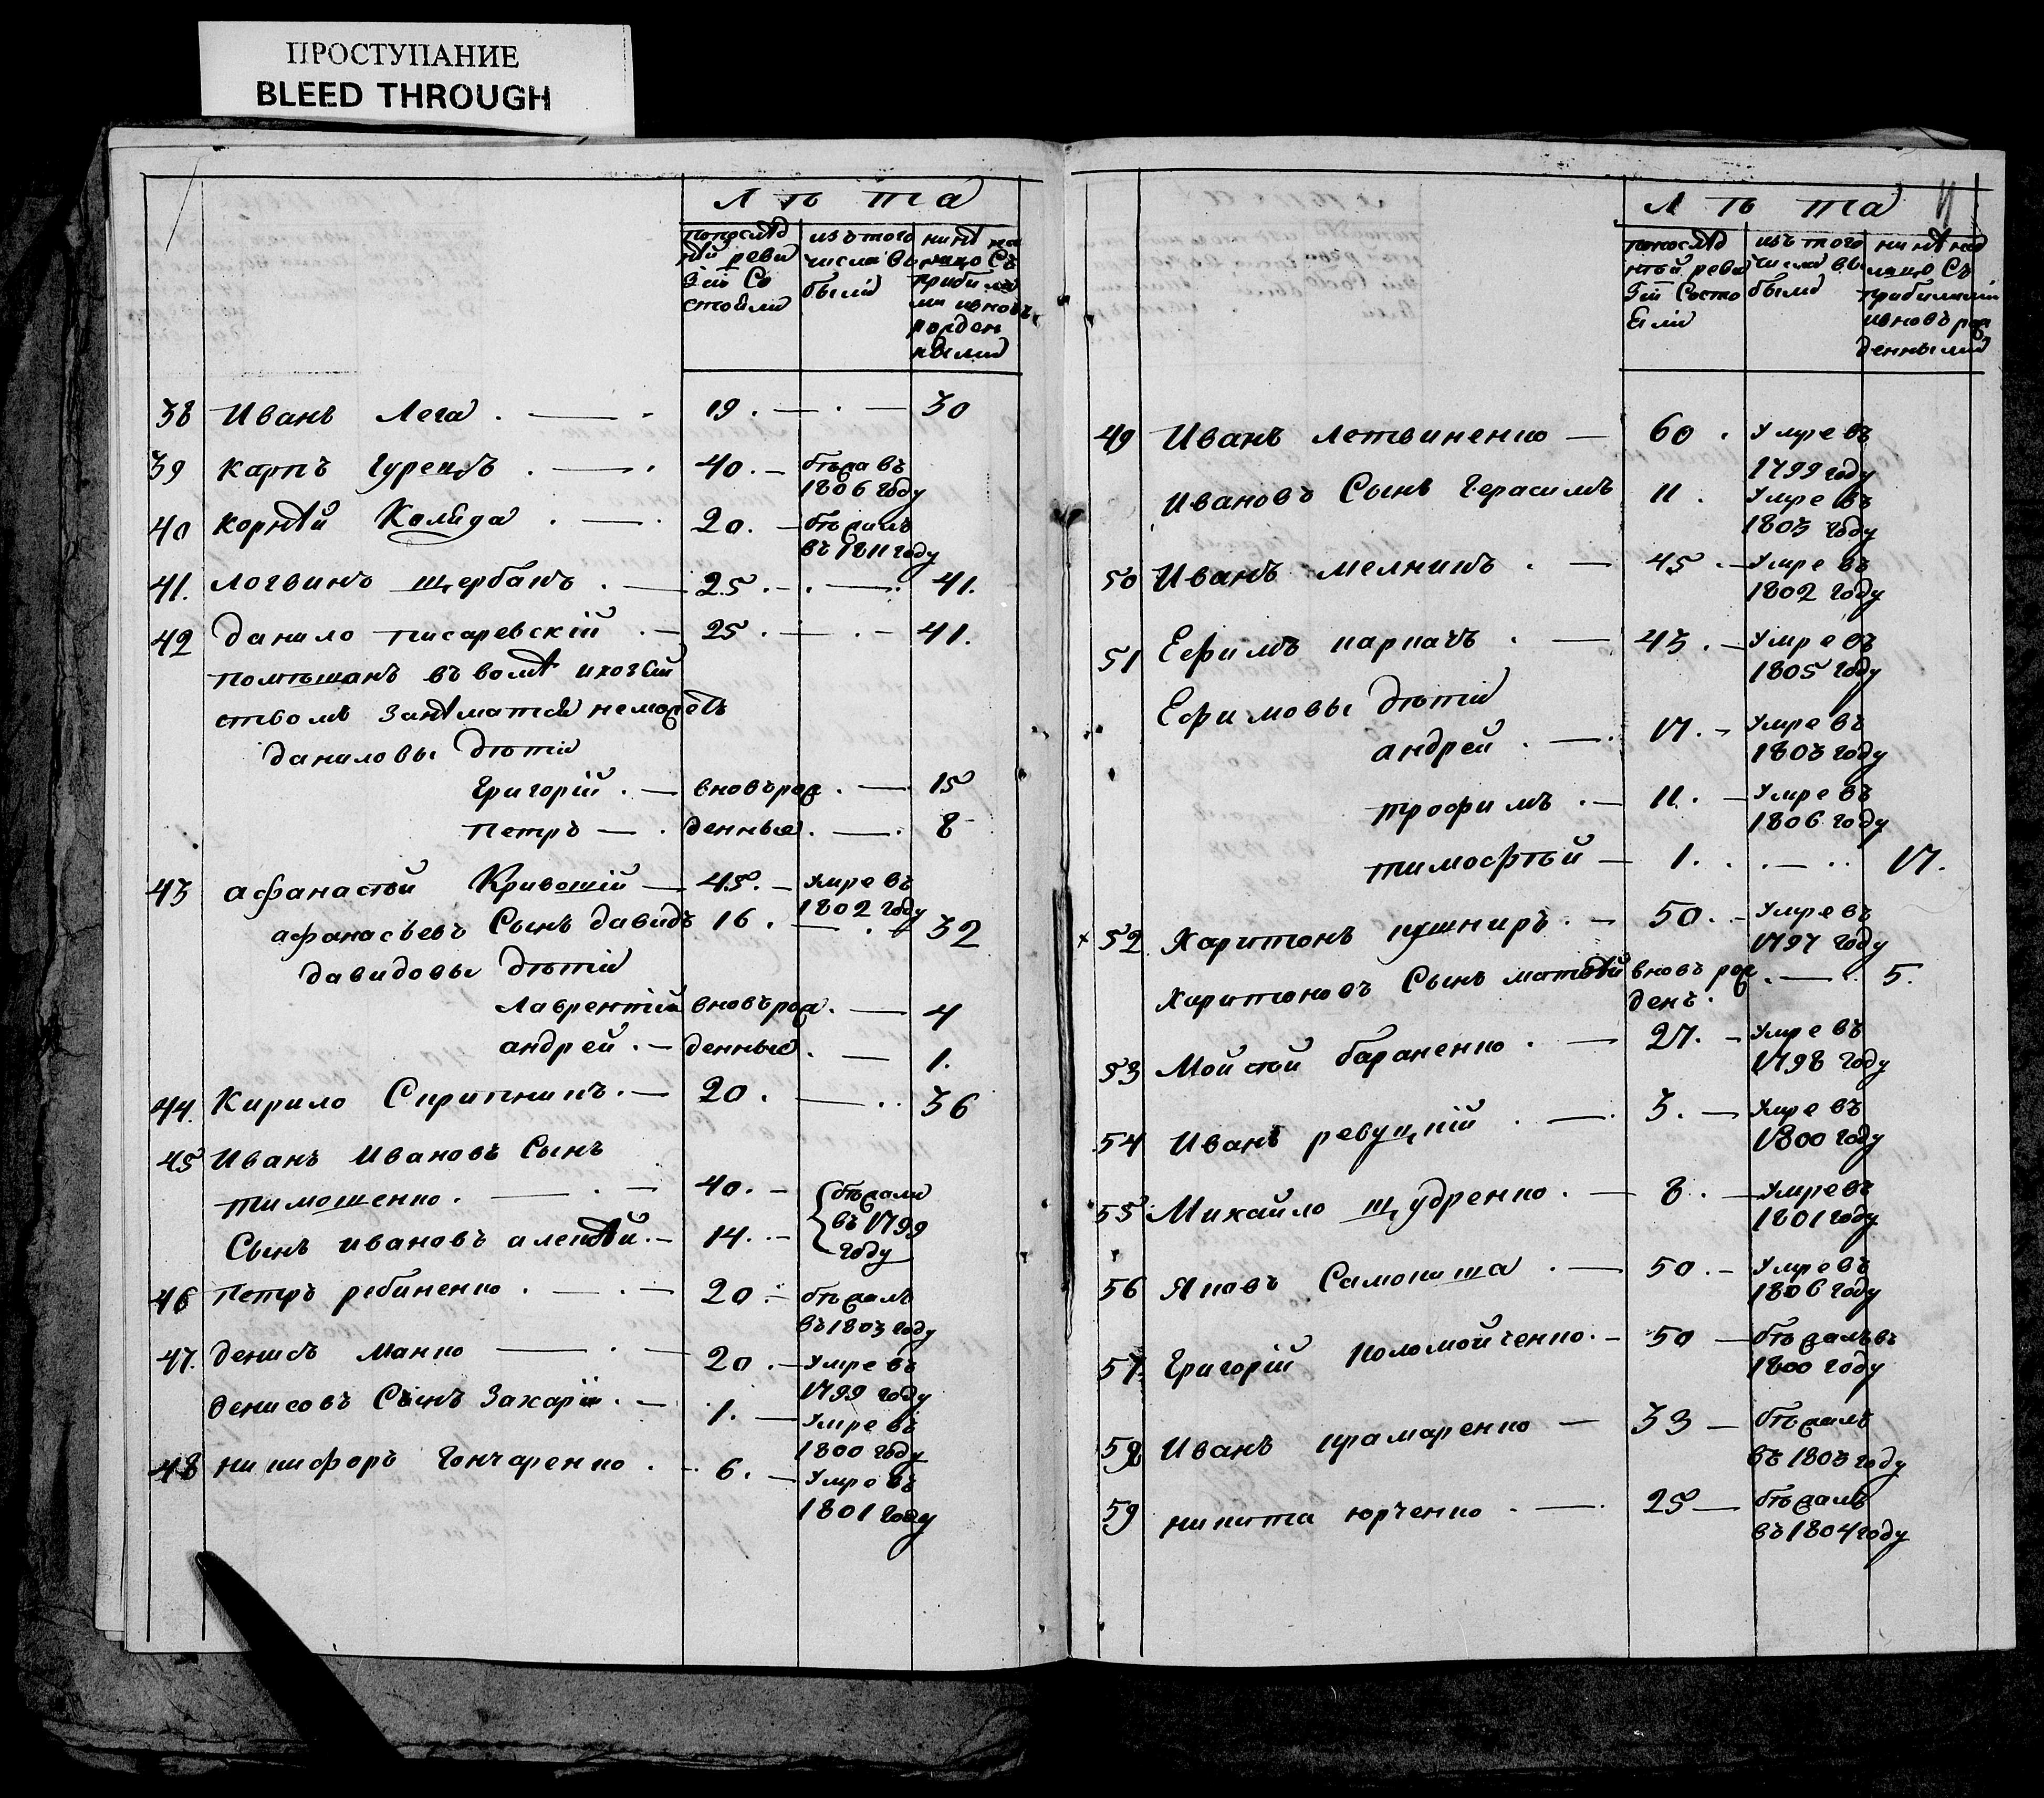 ПРОСТУПАНИЕ
BLEED THROUGH
Лѣта
попослѣд изътого нинѣ на
нѣй реви числа вы лицо съ
зіи со были прибили
стояли ми ивновь
рожден
ными
38 Иванъ Лега . — 19 . — . — 30
39 карпъ гурецъ . — . 40 . — бѣжа въ
1806 году
40 корнѣй Колида . — . 20 . — бѣжалъ
въ 1811 году
41. логвинъ щербакъ . — 25 . — . — . 41.
42 данило писаревскій . — 25 . — . — 41.
помѣшанъ въ
ствомъ заниматся неможетъ
даниловы дѣти
Григорій . — вновърож . — . 15
Петръ — . денные . — . 8
43 афанасѣй Кривошій — 45. — Умре въ
1802 году
афанасьевъ Сынъ давидъ 16 . — . — 32
давидовы дѣти
Лаврентій вновърож . — 4
андрей . — денные . — 1.
44. Кирило Скрипникъ . — 20 . — . . 36
45 Иванъ Ивановъ Сынъ
тимошенко . — . — 40. — бѣжали
въ 1799
Сынъ ивановъ алексѣй . — 14. — году
46 Петръ рябиненко . — . — 20 . — бѣжалъ
въ 1803 году
47. денисъ Манко — . — 20 . — Умре въ
1799 году
денисовъ Сынъ Захарій . — 1. — Умре въ
1800 году
48 никифоръ Гончаренко . — 6. — Умре въ
1801 году
11
Лѣта
попослѣд изътого нинѣ на
нѣй реви числа вы лицо Съ
зіи Состо были прибилими
яли ивновъ рож
денными
49 Иванъ Летвиненко — 60 . Умре въ
1799 году
Ивановъ Сынъ Герасимъ 11 . Умре въ
1803 году
50 Иванъ мелникъ . — 45 . — Умре въ
1802 году
51 Ефимъ карпачъ . — 43 . — Умре въ
1805 году
Ефимовы дѣти
андрей . — . 17. — Умре въ
1803 году
трофимъ . — 11. — Умре въ
1806 году
тимофѣй — 1. . — . . 17.
× 52 Харитонъ кушниръ . — 50. — Умре въ
1797 году
Харитоновъ Сынъ матвѣй вновъ рож . — . 5.
денъ.
53 Мойсѣй бараненко . — 27. — Умре въ
1798 году
54 Иванъ ревуцкій . — . 3. — Умре въ
1800 году
55 Михайло щудренко . — 8 . — Умре въ
1801 году
56 Яковъ Самокиша . — 50 . — Умре въ
1806 году
57. Григорій Коломойченко . — 50 — бѣжалъ въ
1800 году
58 Иванъ крамаренко — 33 — бѣжалъ
въ 1803 году
59 никита юрченко . — . 25 — бѣжалъ
въ 1804 году